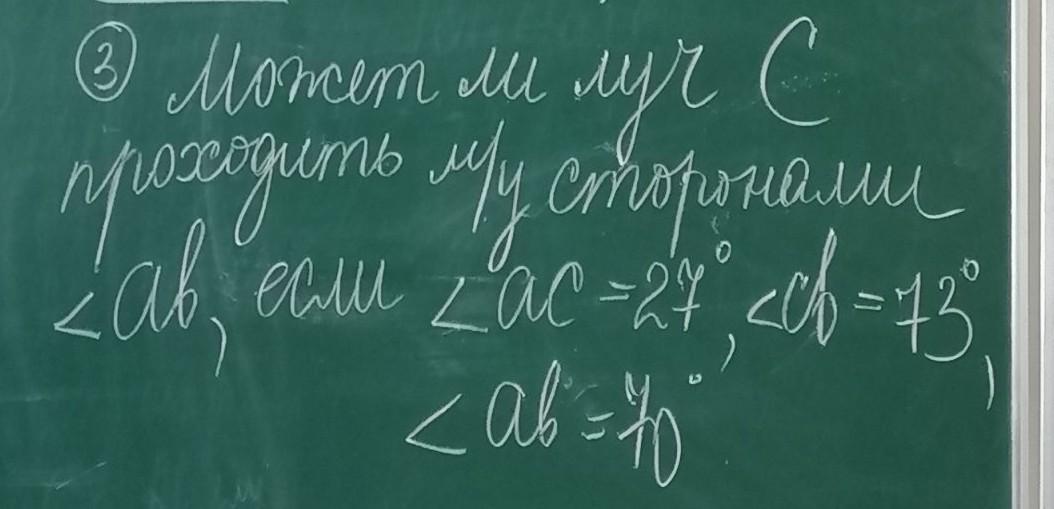 ③ Может ли луч C
проходить м/у сторонами
∠ab, если ∠ac=27°, ∠cb=73°,
∠ab=70°